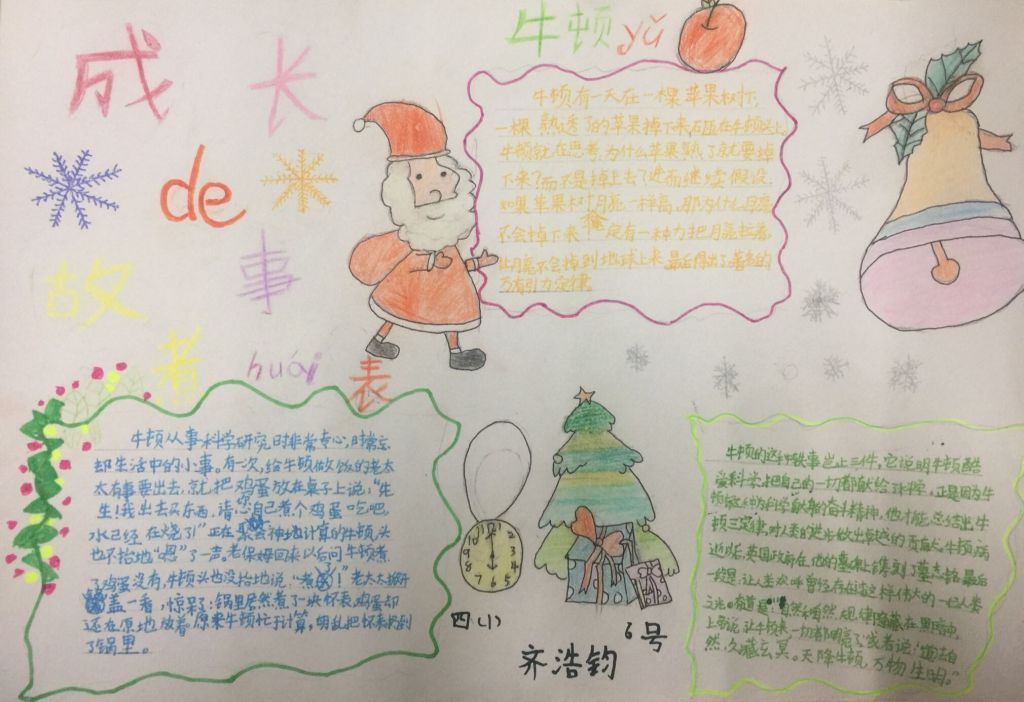 成长
de
故事
牛顿yǔ
牛顿有一天在一棵苹果树下,
一棵熟透了的苹果掉下来砸在牛顿头上,
牛顿就在思考,为什么苹果熟了就要掉
下来?而不是掉上去了进而继续假设,
如果苹果树月亮一样高,那为什么月亮
不会掉下来?一定有一种力把月亮拉着
让月亮不会掉到地球上来,最后得出了著名的
万有引力定律
煮huái表
牛顿从事科学研究时非常专心,时常忘
却生活中的小事。有次,给牛顿做饭的老太
太有事要出去,就把鸡蛋放在桌子上说:“先
生!我出去买东西,请您自己煮个鸡蛋吃吧,
水已经在烧了!”正在聚会神地计算的牛顿头
也不抬地“嗯”了一声,老保姆回来以后问牛顿煮
了鸡蛋没有,牛顿头也没抬地说:“煮了!”老太太掀开
盖一看,惊呆了:锅里居然煮了一块怀表,鸡蛋却
还在原地放着。原来牛顿忙于计算,胡乱把怀表扔到
了锅里。
12
1
2
3
4
5
6
7
8
9
10
11
四(1)
6号
齐浩钧
牛顿的这种轶事岂止三件,它说明牛顿酷
爱科学,把自己的一切都献给科学,正是因为牛
顿献身的精神,他才能总结出牛
顿三定律,对人类的进步做出卓越的贡献,牛顿病
逝后,英国政府在他的墓碑上镌刻了墓志铭,最后
一段是:让人类欢呼曾经存在过这样伟大的一位人类
之光,自然和自然规律隐藏在黑暗中,
上帝说,让牛顿来,一切都明亮了,或者说:“道法自
然,久藏玄冥。天降牛顿,万物生明。”